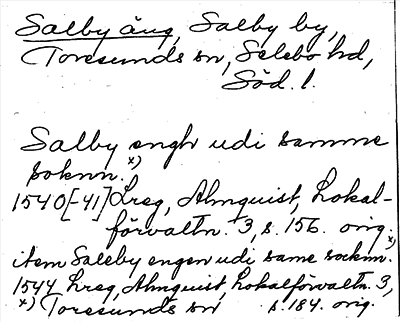 Salby äng, Salby by,
Toresunds sn, Selebo hd,
Söd. l.
Salby engh udi samme
soknn. x)
1540[-41] Lreg, Almquist, Lokal-
förvaltn. 3, s. 156. orig.
item Saleby engen udi same socknn. x)
1544 Lreg, Almquist, Lokalförvaltn. 3,
x) Toresunds sn s. 184. orig.